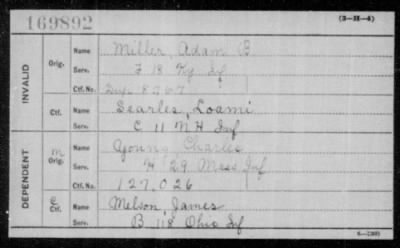 169892
(3-H-4)
INVALID
Orig. Name Miller, Adam B
Serv. F 18 Ky Inf
Ctf. No. 8767
Ctf. Name Searles, Loami
Serv. C 11 N H Inf
DEPENDENT
m Orig. Name Young, Charles
Serv. H 29 Mass Inf
Ctf. No. 127,026
Ctf. Name Melson, James
Serv. B 118 Ohio Inf